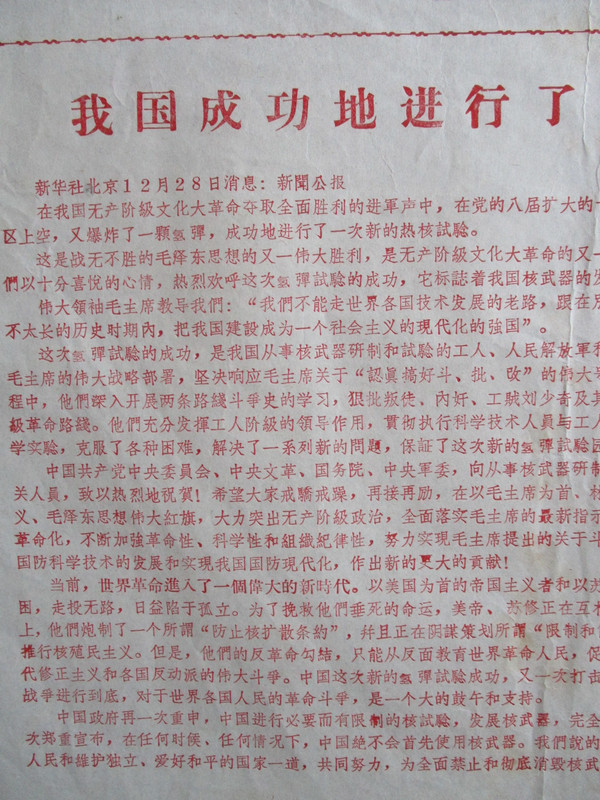 我国成功地进行了
新华社北京12月28日消息：新聞公报
在我国无产阶級文化大革命夺取全面胜利的进軍声中，在党的八届扩大的十
区上空，又爆炸了一顆氢彈，成功地进行了一次新的热核試驗。
这是战无不胜的毛泽东思想的又一伟大胜利，是无产阶級文化大革命的又一
們以十分喜悅的心情，热烈欢呼这次氢彈試驗的成功，它标誌着我国核武器的发
伟大領袖毛主席教导我們：“我們不能走世界各国技术发展的老路，跟在別
不太长的历史时期內，把我国建設成为一个社会主义的現代化的強国”。
这次氢彈試驗的成功，是我国从事核武器研制和試驗的工人、人民解放軍和
毛主席的伟大战略部署，坚决响应毛主席关于“認眞搞好斗、批、改”的伟大
程中，他們深入开展两条路綫斗爭史的学习，狠批叛徒、內奸、工賊刘少奇及其
級革命路綫。他們充分发揮工人阶級的領导作用，貫彻执行科学技术人員与工人
学实驗，克服了各种困难，解决了一系列新的問題，保証了这次新的氢彈試驗
中国共产党中央委員会、中央文革、国务院、中央軍委，向从事核武器研制
关人員，致以热烈地祝賀！希望大家戒驕戒躁，再接再励，在以毛主席为首、林
义、毛泽东思想伟大紅旗，大力突出无产阶級政治，全面落实毛主席的最新指示
革命化，不断加強革命性、科学性和組織紀律性，努力实现毛主席提出的关于
国防科学技术的发展和实現我国国防現代化，作出新的更大的貢献！
当前，世界革命進入了一個偉大的新時代。以美国为首的帝国主义者和以苏
困，走投无路，日益陷于孤立。为了挽救他們垂死的命运，美帝、苏修正在互相
上，他們炮制了一个所謂“防止核扩散条約”，幷且正在阴謀策划所謂“限制和
推行核殖民主义。但是，他們的反革命勾結，只能从反面教育世界革命人民，促
代修正主义和各国反动派的伟大斗爭。中国这次新的氢彈試驗成功，又一次打击
战爭进行到底，对于世界各国人民的革命斗爭，是一个大的鼓午和支持。
中国政府再一次重申，中国进行必要而有限制的核試驗，发展核武器，完全
次郑重宣布，在任何时候、任何情况下，中国絶不会首先使用核武器。我們說的
人民和維护独立、爱好和平的国家一道，共同努力，为全面禁止和彻底消毀核武